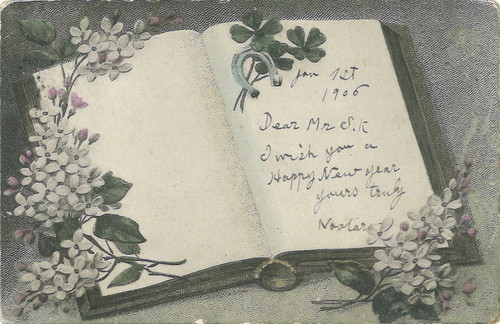 Jan 1st
1906
Dear Mr S.K
I wish you a
Happy New year
yours truly